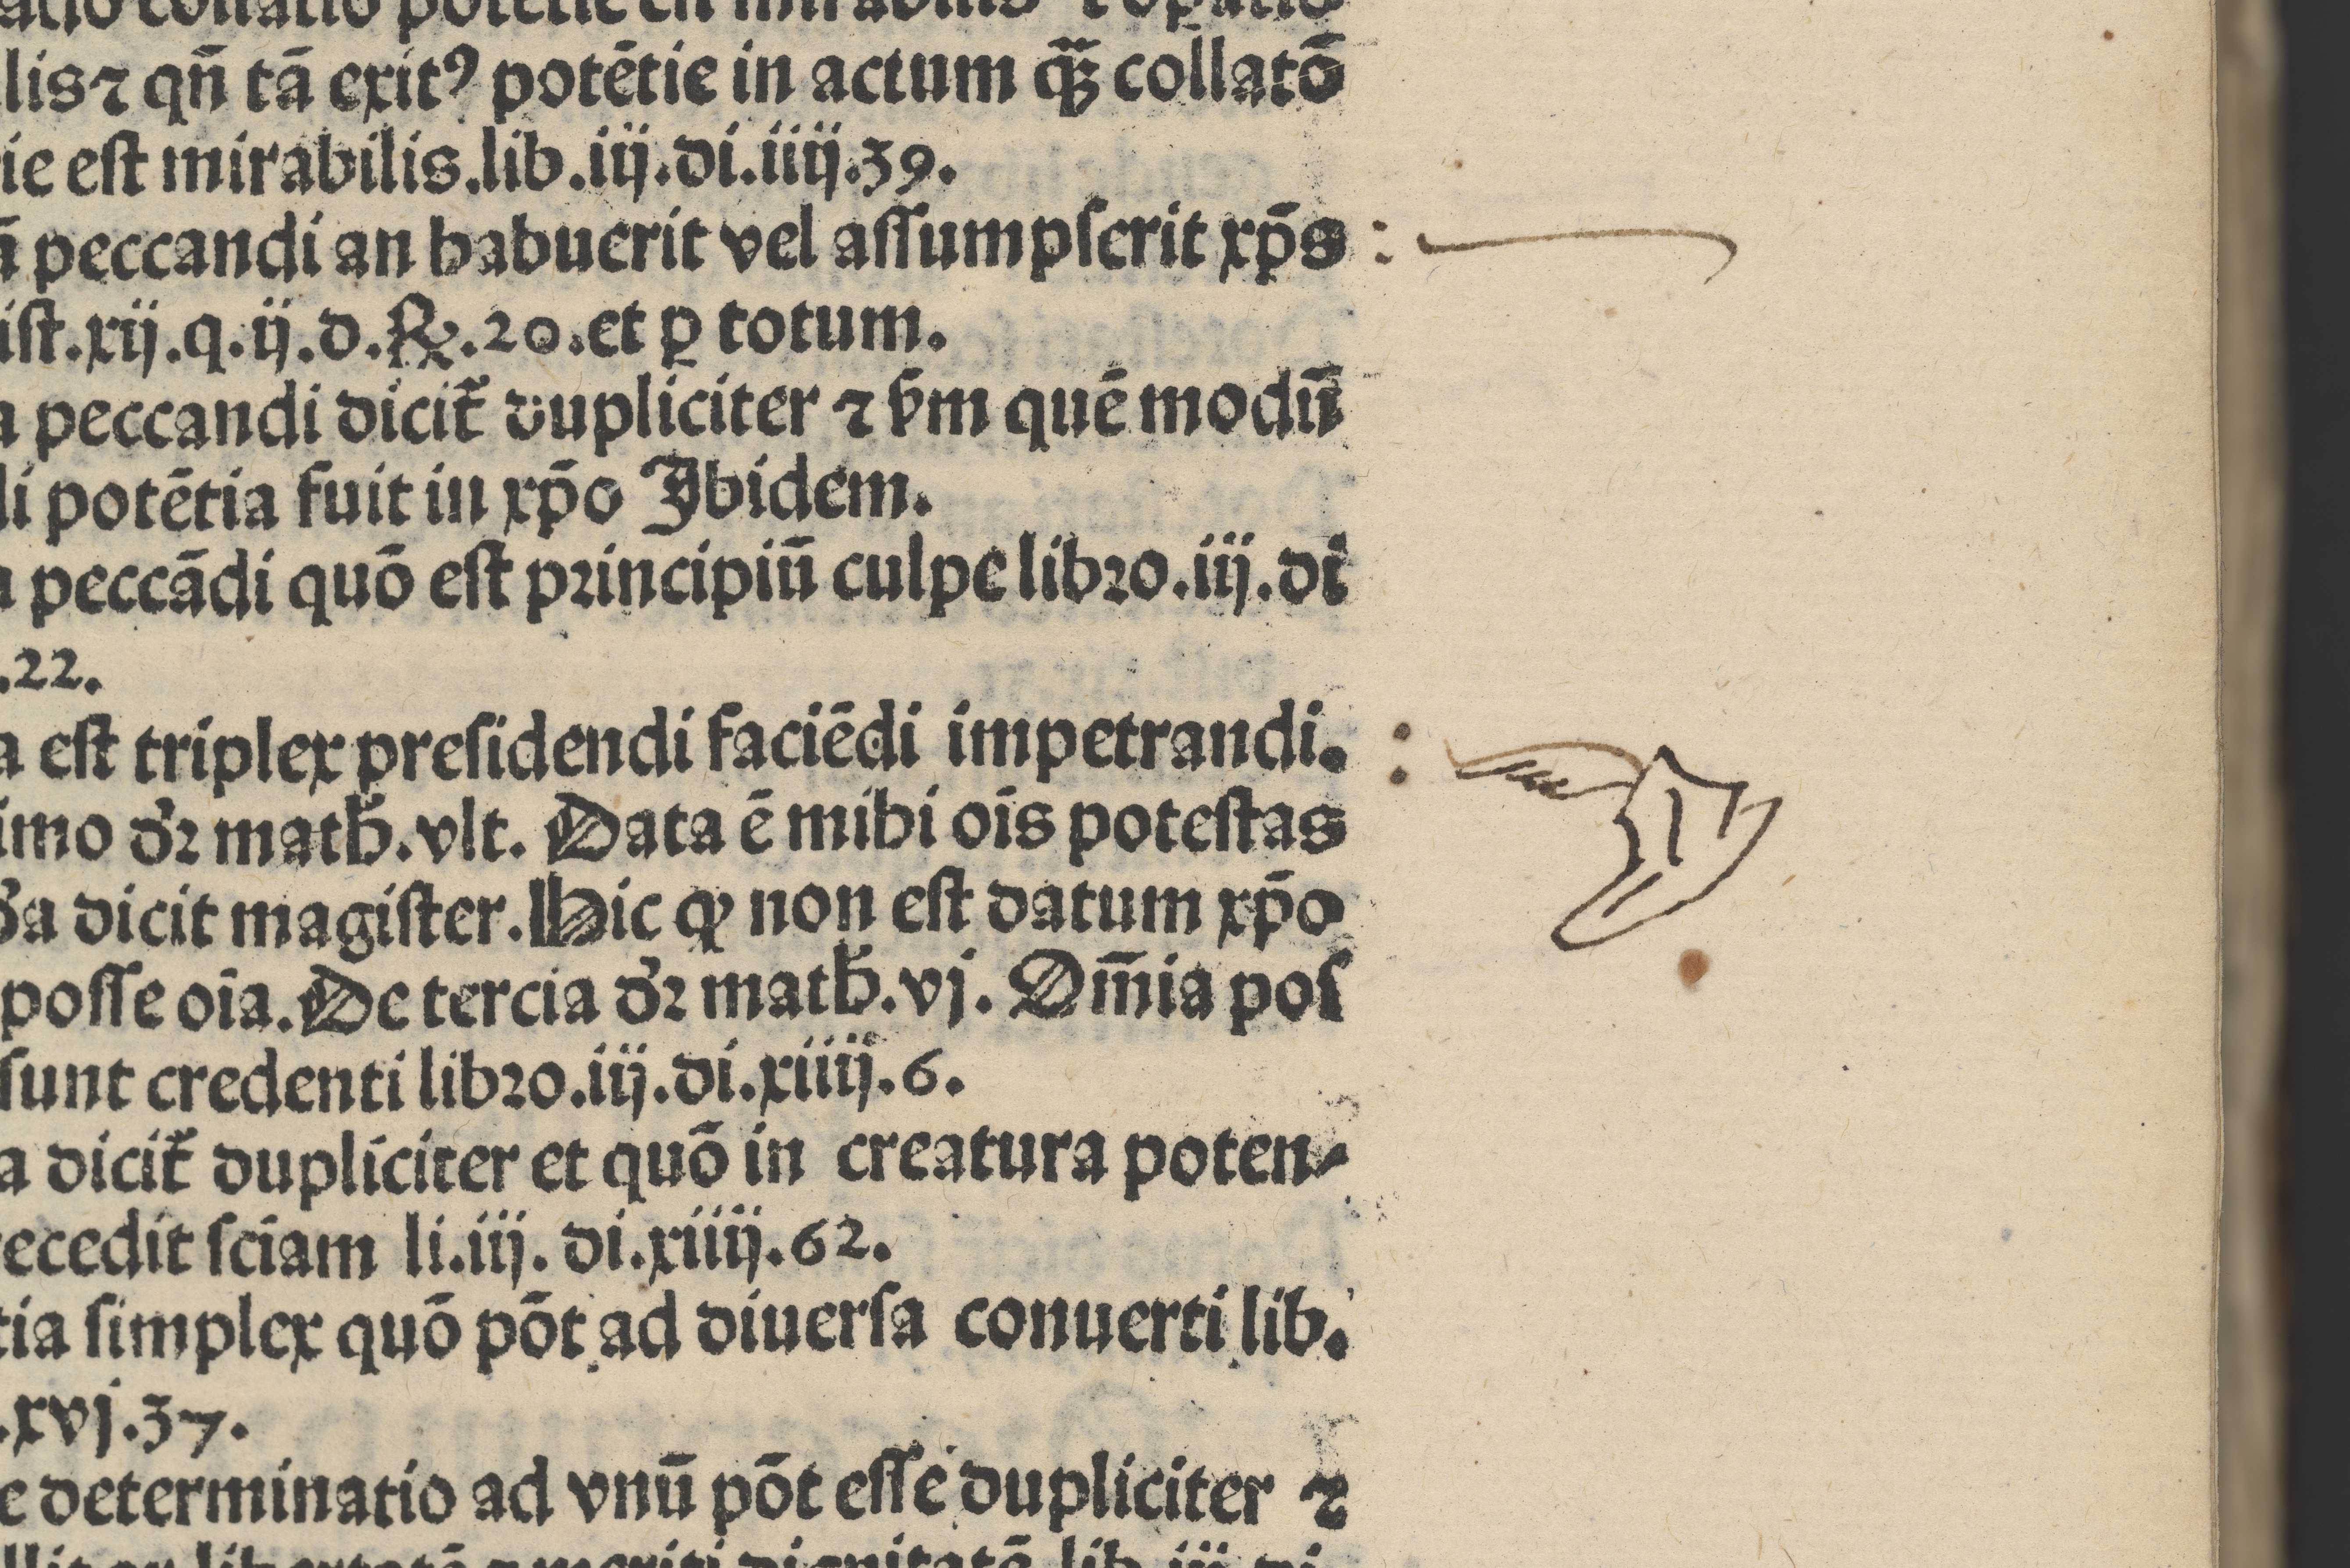 collatio potētie est mirabilis ⁊ oꝑatio
lis ⁊ qn̄ tā exitꝰ potētie in actum qͣꝫ collatō
ie est mirabilis.lib.iij.di.iiij.39.
peccandi an habuerit vel aſſumpſerit xp̄s
iſt.xij.q.ij.d.℞.20.et ꝑ totum.
a peccandi dicit̃ dupliciter ⁊ ẜm quē modū
di potētia fuit in xp̄o Ibidem.
a peccādi quō eſt pꝛincipiū culpe libꝛo.iij.di
.22.
a eſt triplex preſidendi faciēdi impetrandi.
imo dꝛ̄ matħ.vlt. Data ē mihi oīs poteſtas
dicit magiſter. Hic ꝙ non eſt datum xp̄o
poſſe oīa. De tercia dꝛ̄ matħ.vj. Om̄ia poſ
ſunt credenti libꝛo.iij.di.xiiij.6.
a dicit̃ dupliciter et quō in creatura poten⸗
recedit ſciam li.iij. di.xiiij.62.
tia ſimplex quō pōt ad diuerſa conuerti lib.
.xvj.37.
e determinatio ad vnū pōt eſſe dupliciter ⁊
libertatē ⁊ meriti dignitatē lib.iij.di.